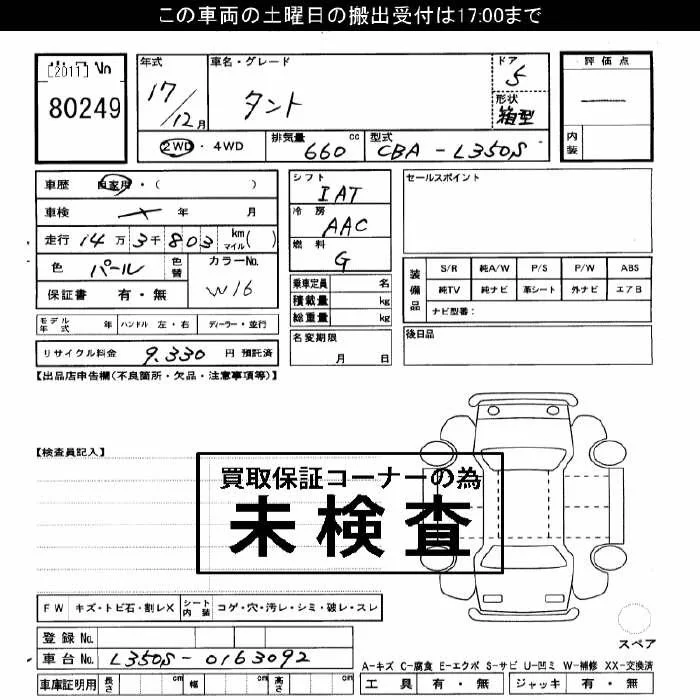 この車両の土曜日の搬出受付は17:00まで
[2011] No
80249
年式 17/12月
車名・グレード タント
ドア 5
形状 箱型
評価点 —
内装
2WD・4WD
排気量 660 cc
型式 CBA-L350S
車歴 自家用・( )
車検 年 月
走行 14万3千803 km マイル( )
色 パール 色替
カラーNo. W16
保証書 有・無
モデル年式 年 ハンドル 左・右 ディーラー・並行
リサイクル料金 9,330 円 預託済
シフト IAT
冷房 AAC
燃料 G
乗車定員 名
積載量 kg
総重量 kg
名変期限 月 日
セールスポイント
装備品 S/R 純A/W P/S P/W ABS
純TV 純ナビ 革シート 外ナビ エアB
ナビ型番:
後日品
【出品店申告欄(不良箇所・欠品・注意事項等)】
【検査員記入】
買取保証コーナーの為
未検査
FW キズ・トビ石・割レX シート内装 コゲ・穴・汚レ・シミ・破レ・スレ
登録No.
車台No. L350S-0163092
車庫証明用 長さ cm 幅 cm 高さ cm
スペア
A-キズ C-腐食 E-エクボ S-サビ U-凹ミ W-補修 XX-交換済
工具 有・無 ジャッキ 有・無